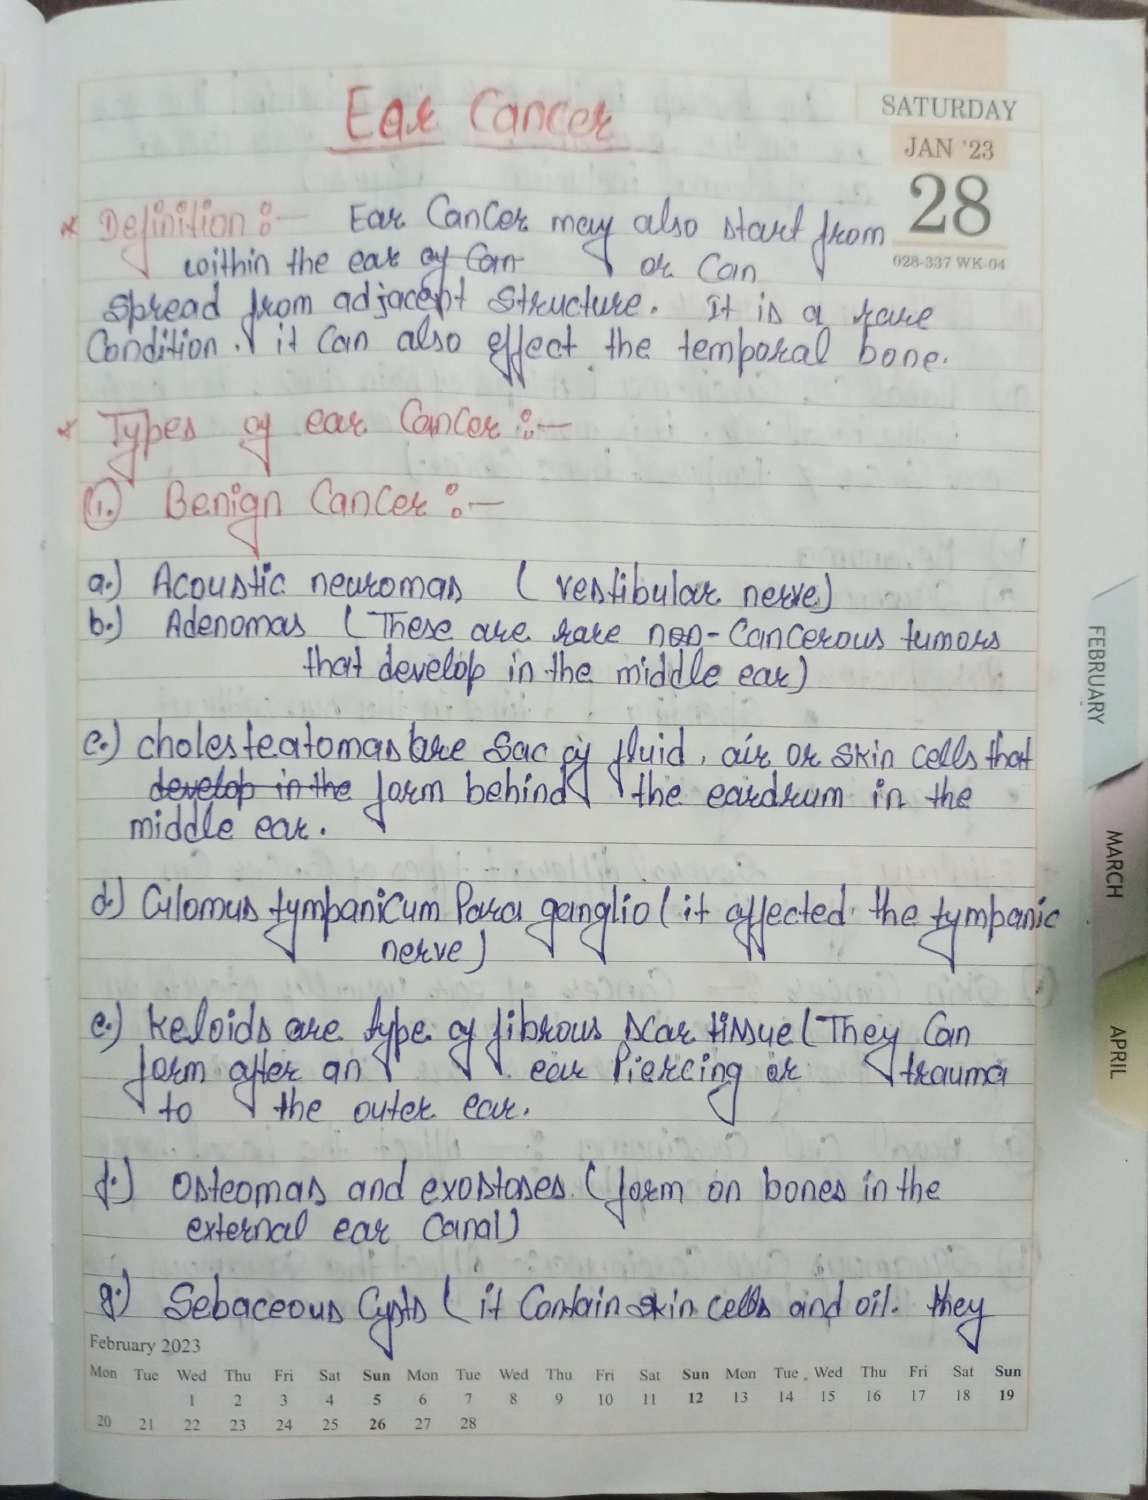 Ear Cancer
SATURDAY
JAN '23
28
028-337 WK-04
* Definition :- Ear Cancer may also start from
within the ear of can or can
spread from adjacent structure. It is a rare
Condition. it can also effect the temporal bone.
* Types of ear Cancer :-
1. Benign Cancer :-
a.) Acoustic neuromas ( vestibular nerve)
b.) Adenomas (These are rare non-Cancerous tumors
that develop in the middle ear)
c.) cholesteatomas are sac of fluid, air or skin cells that
develop in the form behind the eardrum in the
middle ear.
d.) Glomus tympanicum Para ganglio (it affected the tympanic
nerve)
e.) keloids are type of fibrous scar tissue (They can
form after an ear Piercing or trauma
to the outer ear.
f.) Osteomas and exostoses. (form on bones in the
external ear canal)
g.) Sebaceous Cysts ( it Contain skin cells and oil. they
February 2023
Mon Tue Wed Thu Fri Sat Sun Mon Tue Wed Thu Fri Sat Sun Mon Tue Wed Thu Fri Sat Sun
1 2 3 4 5 6 7 8 9 10 11 12 13 14 15 16 17 18 19
20 21 22 23 24 25 26 27 28
FEBRUARY
MARCH
APRIL